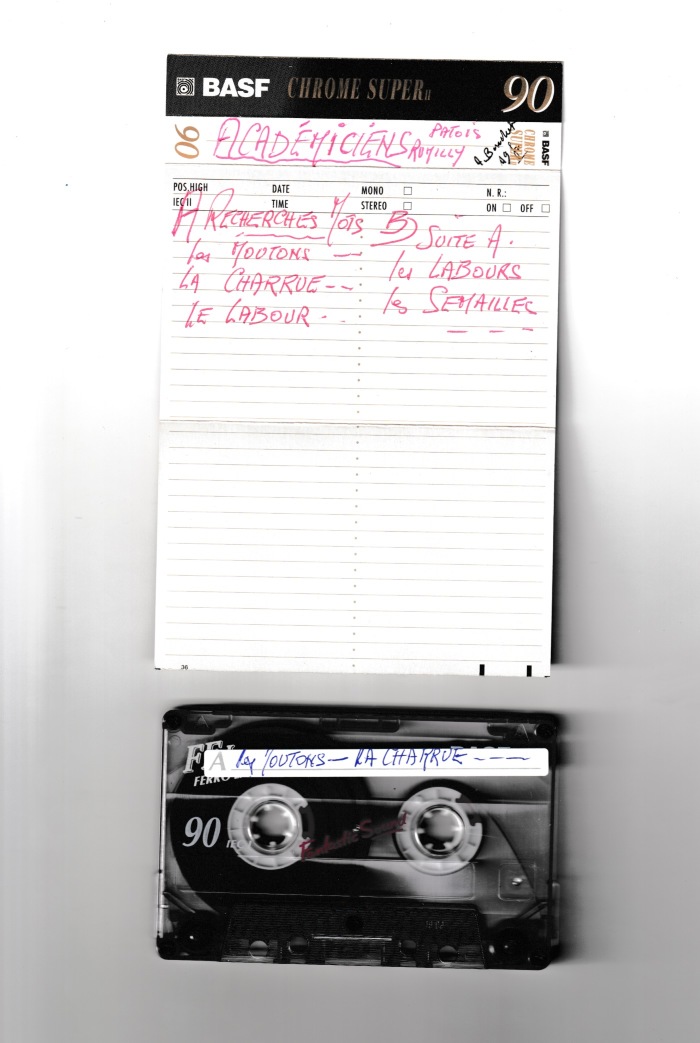 BASF CHROME SUPER II 90
90 ACADÉMICIENS PATOIS RUMILLY
BASF CHROME SUPER
POS.HIGH DATE MONO N. R.:
IEC II TIME STEREO ON OFF
A RECHERCHES MOTS.
les MOUTONS —
LA CHARRUE --
LE LABOUR . .
B) SUITE A.
les LABOURS
les SEMAILLES
— — —
36
FE
FERRO
A les MOUTONS — LA CHARRUE - - - -
90 IEC